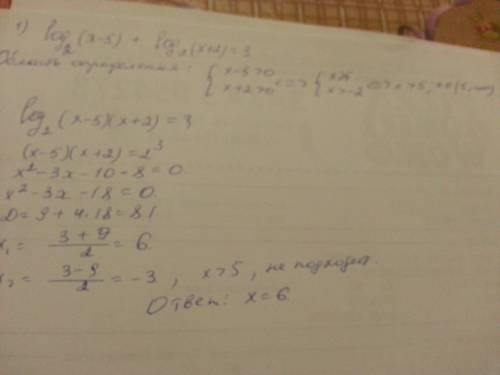 1) log₂(x-5) + log₂(x+2)=3
Область определения: { x-5>0 x+2>0 <=> { x>5 x>-2 <=> x>5,
log₂(x-5)(x+2)=3
(x-5)(x+2)=2³
x²-3x-10-8=0.
x²-3x-18=0.
D=9+4·18=81
x₁= (3+9)/2=6.
x₂= (3-9)/2=-3, x>5, не подходит.
Ответ: x=6.